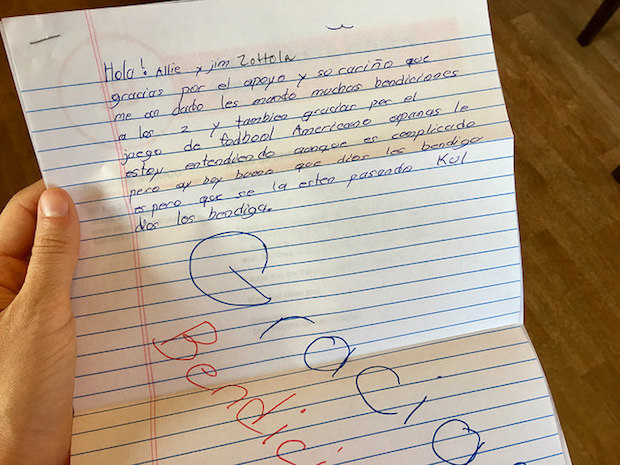 Hola! Allie y jim Zottola
gracias por el apoyo y su cariño que
me an dado les mando muchas bendiciones
a los 2 y tambien gracias por el
juego de fodbool Americano apanas le
estoy entendiendo aunque es complicado
pero ay boy bueno que dios los bendiga
espero que se la esten pasando Kul
dios los bendiga.
Gracia
Bendici